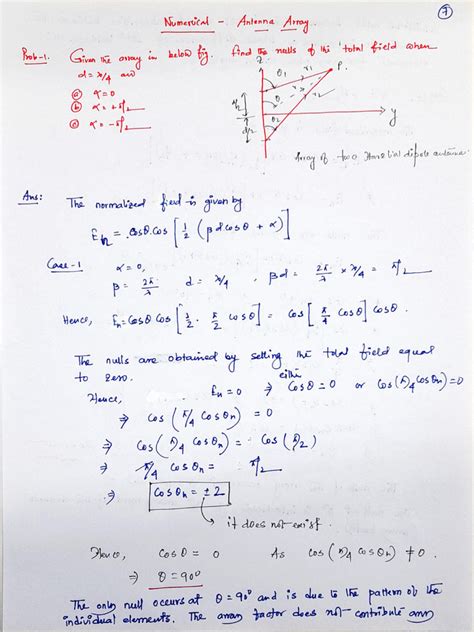 7
Numerical - Antenna Array.
Prob-1. Given the array in below fig, find the nulls of the total field when
d = λ/4 and
ⓐ α = 0
ⓑ α = +π/2
ⓒ α = -π/2
z
θ1 r1 P.
θ r
r2
d/2 θ2
d/2
y
Array of two Horizontal dipole antenna
Ans: The normalized field is given by
En = cosθ.cos [ 1/2 (βd cosθ + α) ]
Case-1 α = 0,
β = 2π/λ d = λ/4, βd = 2π/λ × λ/4 = π/2
Hence, En = cosθ cos [ 1/2 . π/2 cosθ ] = cos [ π/4 cosθ ] cosθ.
The nulls are obtained by setting the total field equal
to zero.
Hence, En = 0 ⇒ either cosθ = 0 or cos(π/4 cosθn) = 0
⇒ cos (π/4 cosθn) = 0
⇒ cos (π/4 cosθn) = cos (π/2)
⇒ π/4 cosθn = π/2
⇒ cosθn = ± 2
↳ it does not exist.
Hence, cosθ = 0 As cos (π/4 cosθn) ≠ 0.
⇒ θ = 90°
The only null occurs at θ = 90° and is due to the pattern of the
individual elements. The array factor does not contribute any